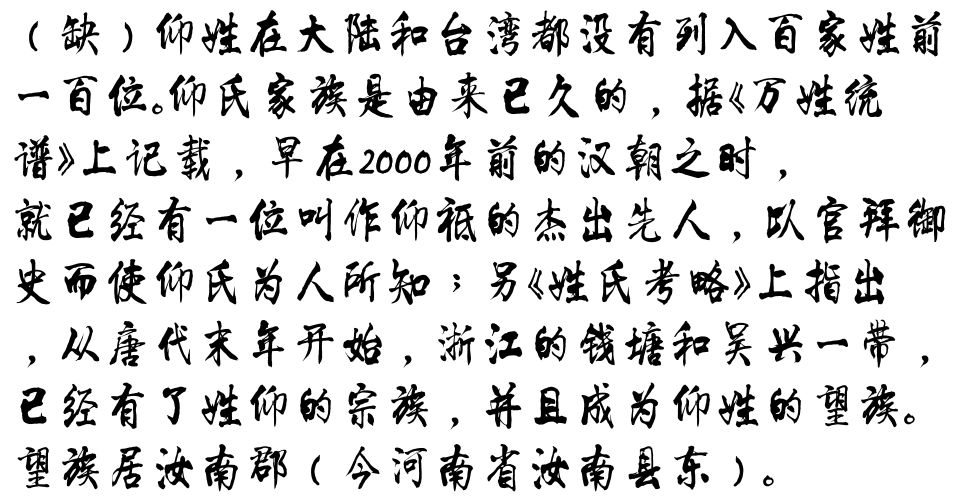 （缺）仰姓在大陆和台湾都没有列入百家姓前
一百位。仰氏家族是由来已久的，据《万姓统
谱》上记载，早在2000年前的汉朝之时，
就已经有一位叫作仰祗的杰出先人，以官拜御
史而使仰氏为人所知；另《姓氏考略》上指出
，从唐代末年开始，浙江的钱塘和吴兴一带，
已经有了姓仰的宗族，并且成为仰姓的望族。
望族居汝南郡（今河南省汝南县东）。